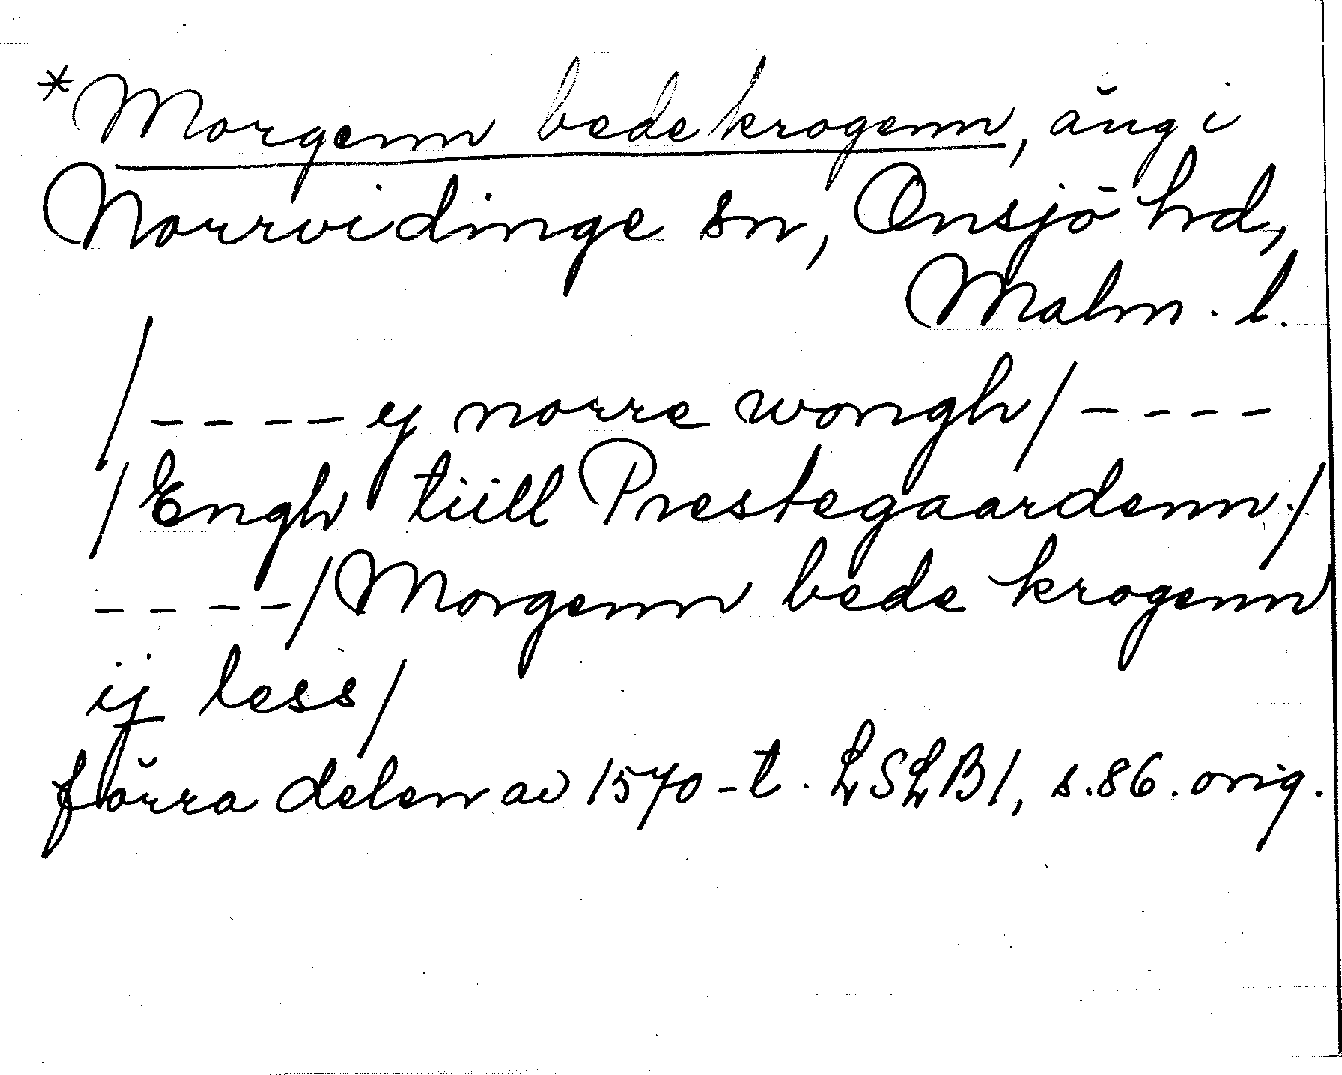 *Morgenn bede krogenn, äng i
Norrvidinge sn, Onsjö hrd,
Malm. l.
/ - - - - ej norre wongh / - - - -
/ Engh tiill Prestegaardenn. /
- - - - / Morgenn bede krogenn
ij less /
förra delen av 1570-t. LSLB1, s. 86. orig.